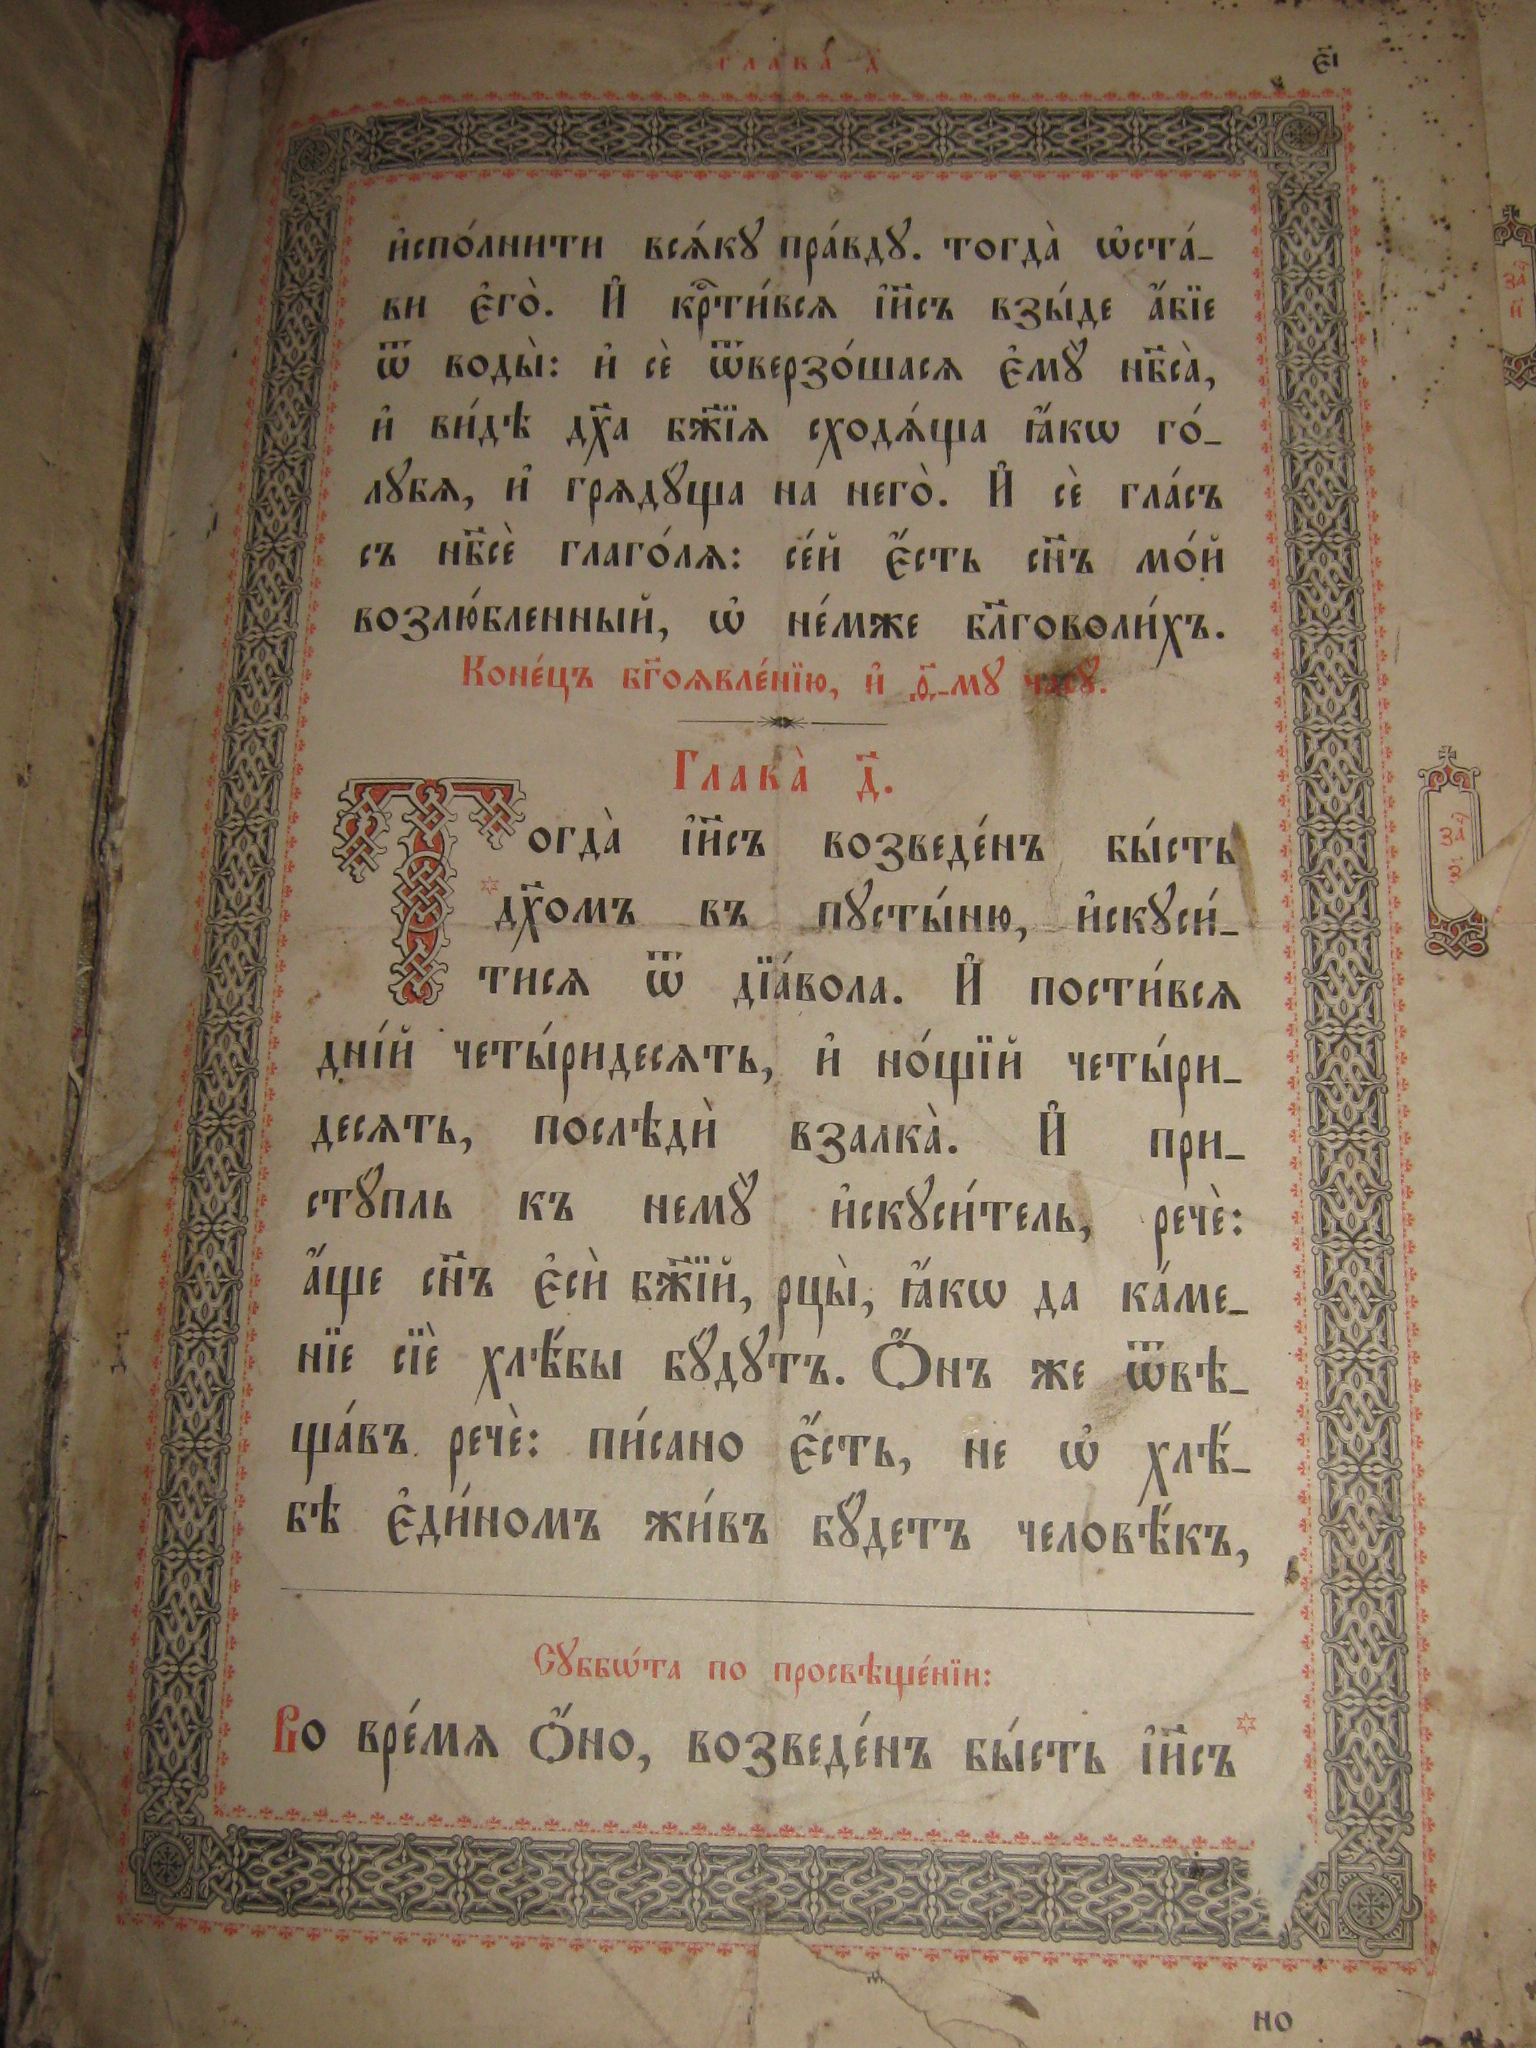 глава̀ д҃
є҃і
и҆спо́лнити всѧ́кꙋ пра́вдꙋ. тогда̀ ѡ҆ста́_
ви є҆го̀. И҆ кр҃ти́всѧ і҆и҃съ взы́де а҆́бїе
ѿ воды̀: и҆ сѐ ѿверзо́шасѧ є҆мꙋ̀ нб҃са̀,
и҆ ви́дѣ дх҃а бж҃їѧ сходѧ́ща ꙗ҆́кѡ го́_
лꙋбѧ, и҆ грѧдꙋ́ща на него̀. И҆ сѐ гла́съ
съ нб҃сѐ глаго́лѧ: се́й є҆́сть сн҃ъ мо́й
возлю́бленный, ѡ҆ не́мже бл҃говоли́хъ.
Коне́цъ бг҃оѧвле́нїю, и҆ ѳ҃_мꙋ часꙋ̀.
Глава̀ д҃.
Тогда̀ і҆и҃съ возведе́нъ бы́сть
*дх҃омъ въ пꙋсты́ню, и҆скꙋси́_
тисѧ ѿ дїа́вола. И҆ пости́всѧ
дні́й четы́ридесѧть, и҆ но́щїй четы́ри_
десѧть, послѣдѝ взалка̀. И҆ при_
стꙋ́пль къ немꙋ̀ и҆скꙋси́тель, речѐ:
а҆́ще сн҃ъ є҆сѝ бж҃їй, рцы̀, ꙗ҆́кѡ да ка́ме_
нїе сїѐ хлѣ́бы бꙋ́дꙋтъ. Ѻ҆́нъ же ѿвѣ_
ща́въ речѐ: пи́сано є҆́сть, не ѡ҆ хлѣ́_
бѣ є҆ди́номъ жи́въ бꙋ́детъ человѣ́къ,
Сꙋббѡ́та по просвѣще́нїи:
Во вре́мѧ ѻ҆́но, возведе́нъ бы́сть і҆и҃съ*
но
за҄